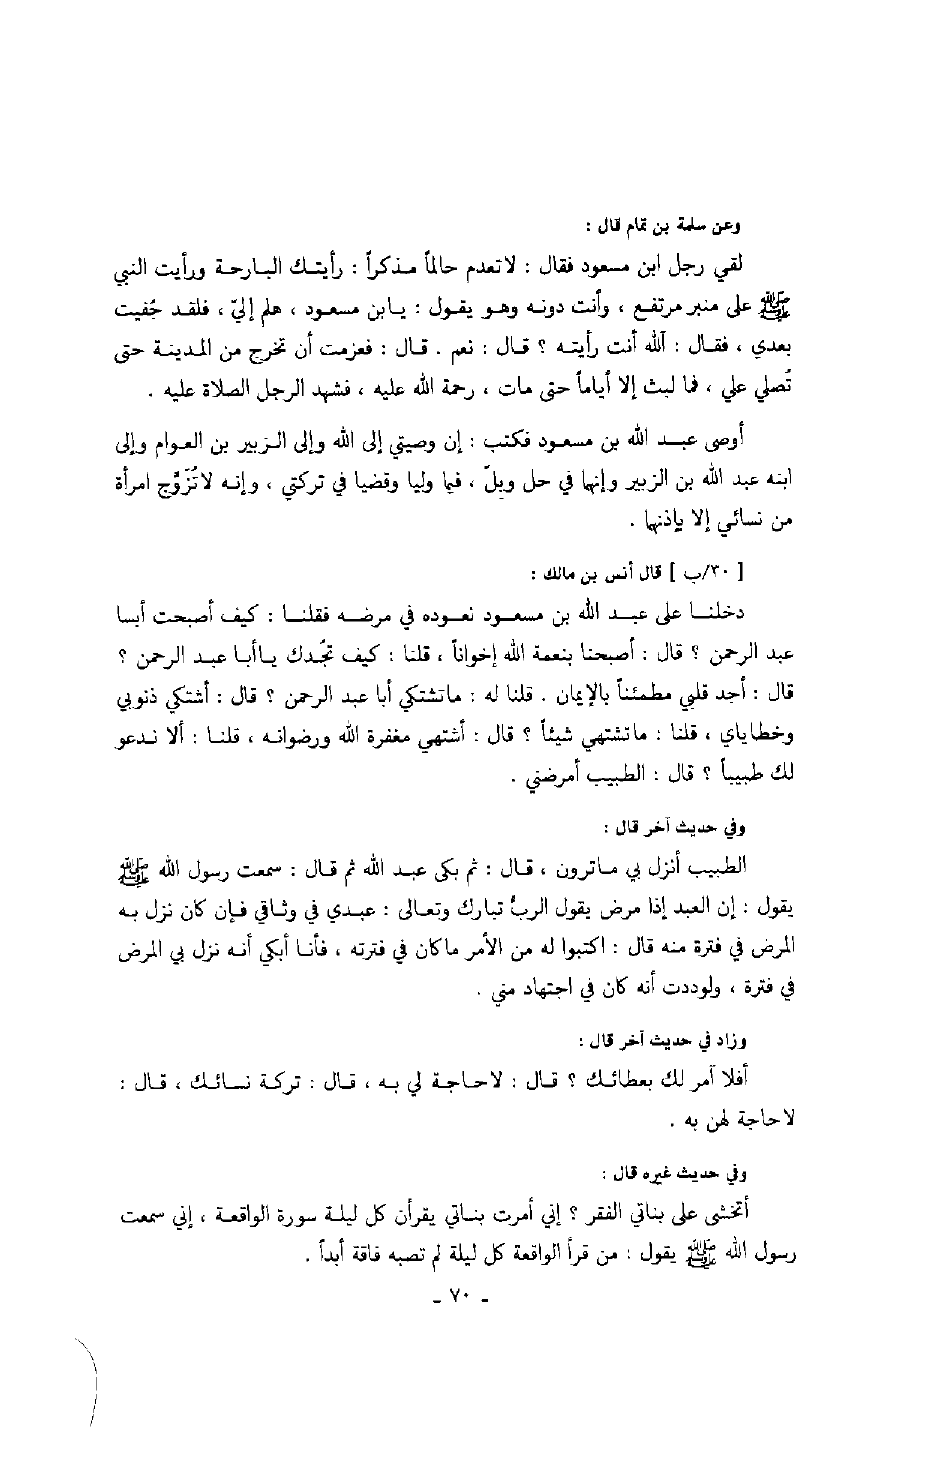 وعن سلمة بن تمام قال :
لقي رجل ابن مسعود فقال : لاتعدم حالماً مذكراً : رأيتك البارحة ورأيت النبي
ﷺ على منبر مرتفع ، وأنت دونه وهو يقول : يابن مسعود ، هلم إليّ ، فلقد جُفيت
بعدي ، فقال : آلله أنت رأيته ؟ قال : نعم . قال : فعزمت أن تخرج من المدينة حتى
تُصلي علي ، فما لبث إلا أياماً حتى مات ، رحمة الله عليه ، فشهد الرجل الصلاة عليه .
أوصى عبد الله بن مسعود فكتب : إن وصيتي إلى الله وإلى الزبير بن العوام وإلى
ابنه عبد الله بن الزبير وإنها في حل وبلّ ، فيما وليا وقضيا في تركتي ، وإنه لاتُزَوَّج امرأة
من نسائي إلا بإذنها .
[ ٣٠/ب ] قال أنس بن مالك :
دخلنا على عبد الله بن مسعود نعوده في مرضه فقلنا : كيف أصبحت أبا
عبد الرحمن ؟ قال : أصبحنا بنعمة الله إخواناً ، قلنا : كيف تجدك ياأبا عبد الرحمن ؟
قال : أجد قلبي مطمئناً بالإيمان . قلنا له : ماتشتكي أبا عبد الرحمن ؟ قال : أشتكي ذنوبي
وخطاياي ، قلنا : ماتشتهي شيئاً ؟ قال : أشتهي مغفرة الله ورضوانه ، قلنا : ألا ندعو
لك طبيباً ؟ قال : الطبيب أمرضني .
وفي حديث آخر قال :
الطبيب أنزل بي ماترون ، قال : ثم بكى عبد الله ثم قال : سمعت رسول الله ﷺ
يقول : إن العبد إذا مرض يقول الربُّ تبارك وتعالى : عبدي في وثاقي فإن كان نزل به
المرض في فترة منه قال : اكتبوا له من الأمر ماكان في فترته ، فأنا أبكي أنه نزل بي المرض
في فترة ، ولوددت أنه كان في اجتهاد مني .
وزاد في حديث آخر قال :
أفلا آمر لك بعطائك ؟ قال : لاحاجة لي به ، قال : تركة نسائك ، قال :
لاحاجة لهن به .
وفي حديث غيره قال :
أتخشى على بناتي الفقر ؟ إني أمرت بناتي يقرأن كل ليلة سورة الواقعة ، إني سمعت
رسول الله ﷺ يقول : من قرأ الواقعة كل ليلة لم تصبه فاقة أبداً .
ـ ٧٠ ـ